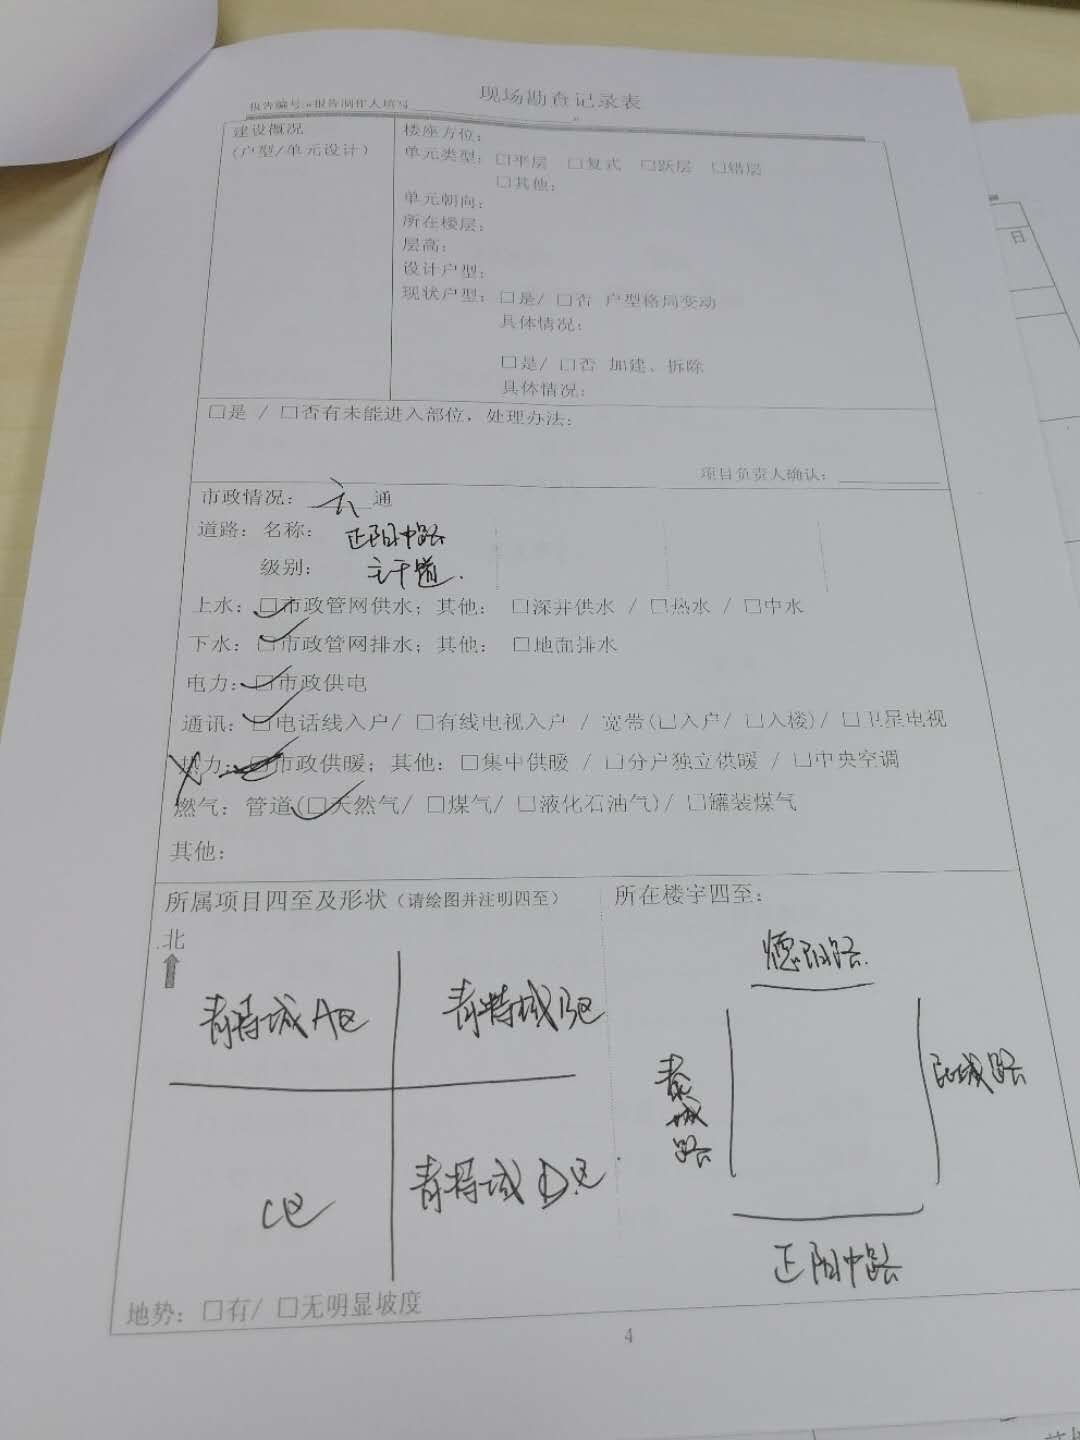 现场勘查记录表
报告编号:"报告制作人填写"
建设概况
(户型/单元设计)
楼座方位:
单元类型: □平层 □复式 □跃层 □错层
□其他:
单元朝向:
所在楼层:
层高:
设计户型:
现状户型: □是/ □否 户型格局变动
具体情况:
□是/ □否 加建、拆除
具体情况:
□是 / □否有未能进入部位, 处理办法:
项目负责人确认:
市政情况: 六 通
道路: 名称: 正阳中路
级别: 主干道.
上水: ☑市政管网供水; 其他: □深井供水 / □热水 / □中水
下水: ☑市政管网排水; 其他: □地面排水
电力: ☑市政供电
通讯: ☑电话线入户/ □有线电视入户 / 宽带(□入户/ □入楼)/ □卫星电视
热力: □市政供暖; 其他: □集中供暖 / □分户独立供暖 / □中央空调
燃气: 管道(☑天然气/ □煤气/ □液化石油气)/ □罐装煤气
其他:
所属项目四至及形状 (请绘图并注明四至)
北
青特城A区
青特城B区
C区
青特城D区
地势: □有/ □无明显坡度
所在楼宇四至:
德阳路
泰城路
民城路
正阳中路
4
日